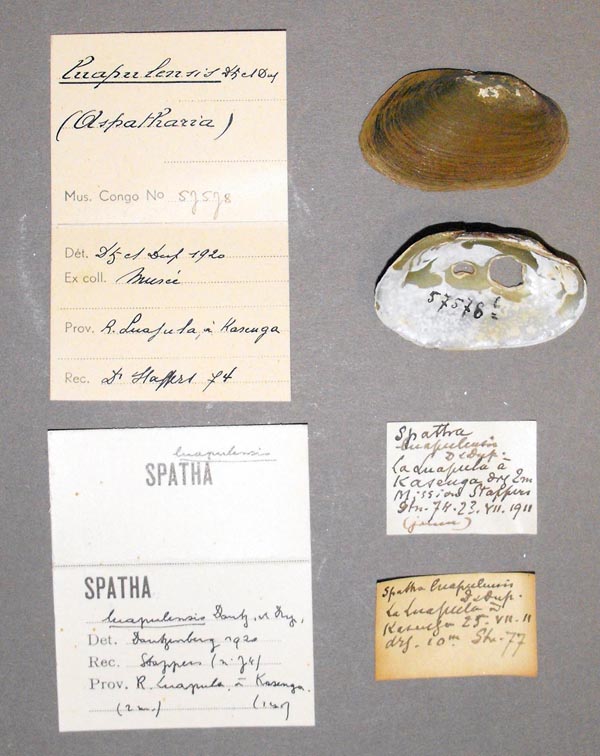 Luapulensis Dtz et Dup
(Aspatharia)
Mus. Congo No 57578
Dét. Dtz et Dup 1920
Ex coll. Musée
Prov. R. Luapula, à Kasenga
Rec. Dr Stappers 74
luapulensis
SPATHA
SPATHA
luapulensis Dautz. et
Det. Dautzenberg 1920
Rec. Stappers (n. 74)
Prov. R. Luapula, à Kasenga.
(2 m.)
57578
Spatha
luapulensis
D & Dup.
La Luapula à
Kasenga drg 2m
Mission Stappers
Stn. 74-23. VII. 1911
Spatha luapulensis
D & Dup.
La Luapula à
Kasenga 25. VII. 11
drg. 10m. Stn. 77